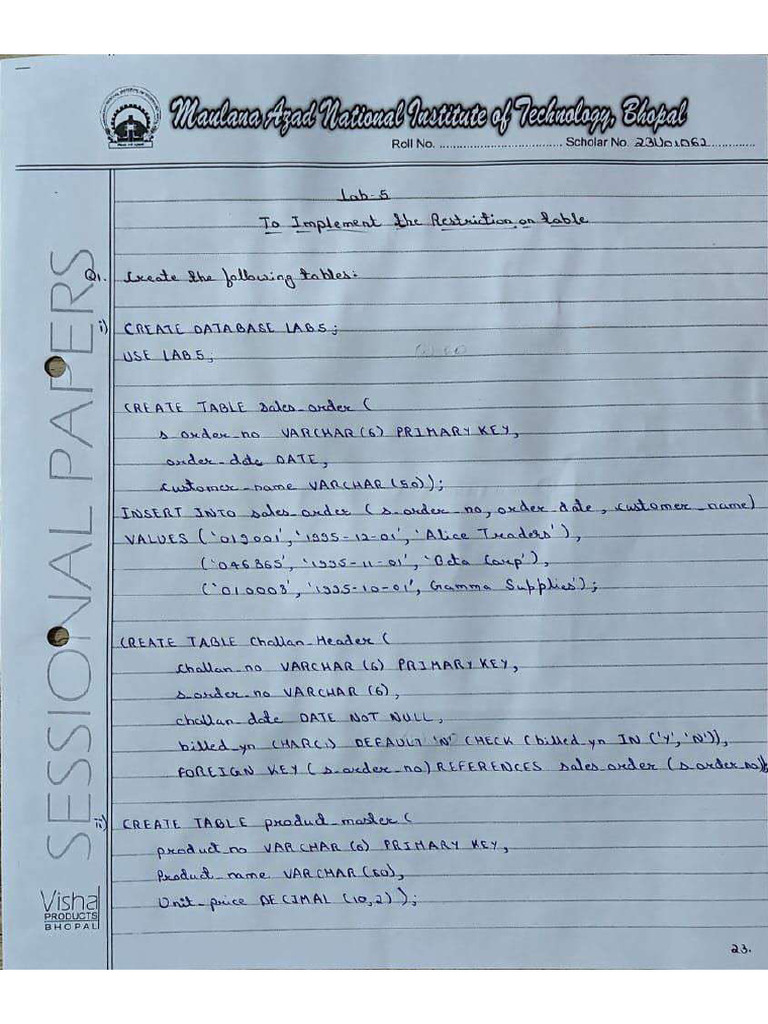 Maulana Azad National Institute of Technology, Bhopal
Roll No. ................................. Scholar No. 23U01062.............
Lab-5
To Implement the Restriction on table
Q1. Create the following tables:
i) CREATE DATABASE LAB5;
USE LAB5;
CREATE TABLE sales_order (
s_order_no VARCHAR (6) PRIMARY KEY,
order_date DATE,
customer_name VARCHAR (50));
INSERT INTO sales_order (s_order_no, order_date, customer_name)
VALUES ('019001', '1995-12-01', 'Alice Traders'),
('046365', '1995-11-01', 'Beta Corp'),
('010003', '1995-10-01', Gamma Supplies');
CREATE TABLE Challan_Header (
Challan_no VARCHAR (6) PRIMARY KEY,
s_order_no VARCHAR (6),
challan_date DATE NOT NULL,
billed_yn CHAR(1) DEFAULT 'N' CHECK (billed_yn IN ('Y', 'N')),
FOREIGN KEY (s_order_no) REFERENCES sales_order (s_order_no));
ii) CREATE TABLE product_master (
product_no VARCHAR (6) PRIMARY KEY,
Product_name VARCHAR (50),
Unit_price DECIMAL (10,2));
SESSIONAL PAPERS
Vishal
PRODUCTS
BHOPAL
23.